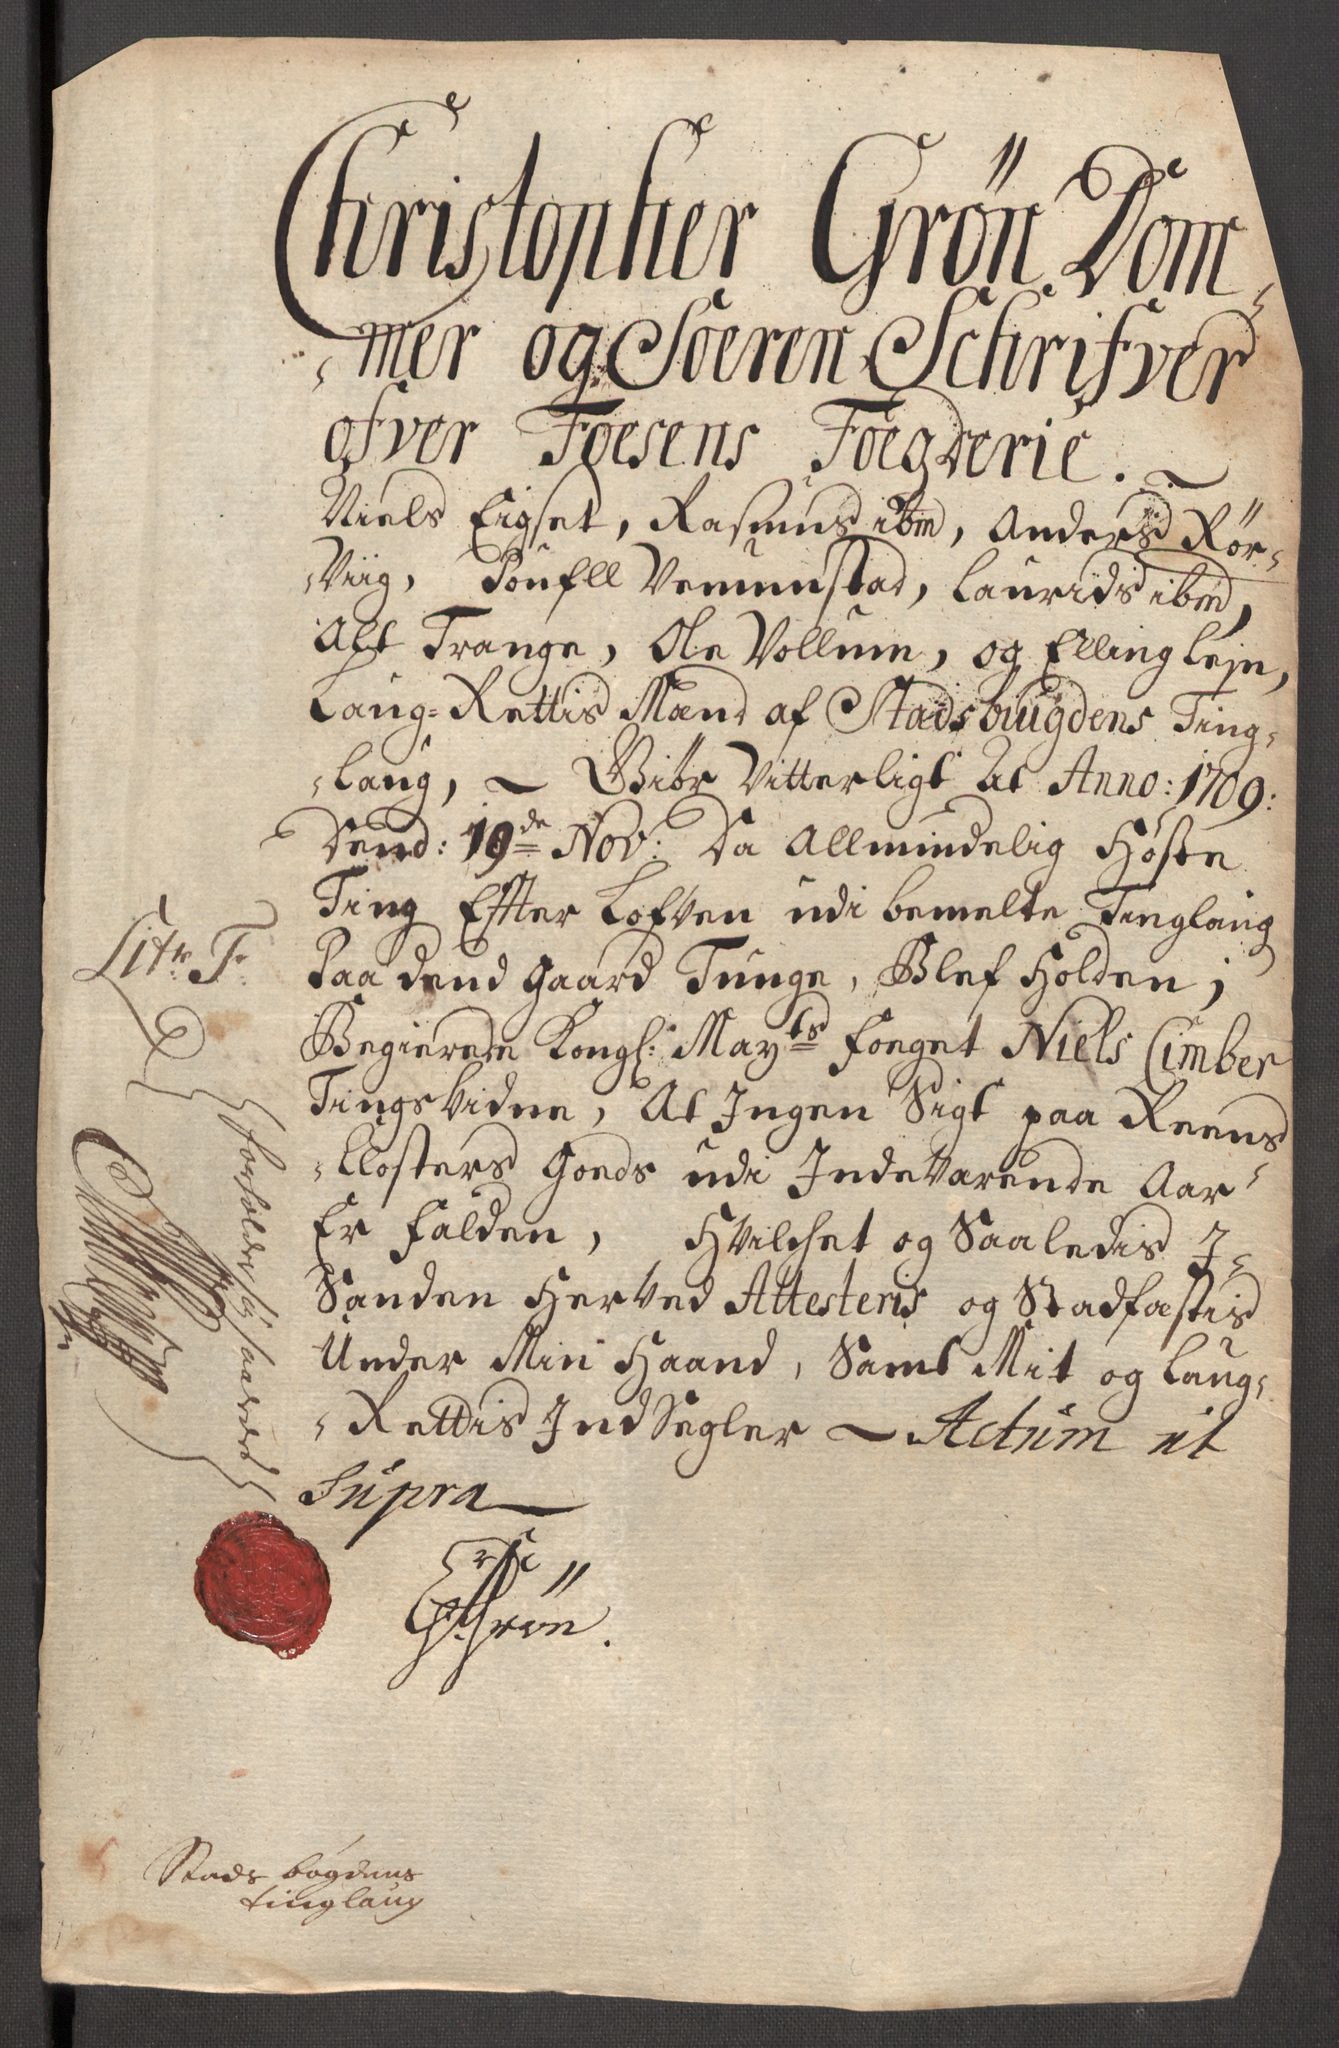 Christopher Grön Dom-
-mer og Soeren Schrifver
ofver Foesens Foegderie.
Niels Eigset, Rasmus ibm, Anders Rör-
-viig, Poufell Vemunstad, Laurids ibm,
Alf Trange, Ole Vollum, og Elling Leje,
Laug-Rettis Mænd af Stadsbuugdens Ting-
-laug, Giör Vitterligt At Anno: 1709:
Dend: 19de Nov: Da Allmindelig Höste
Ting Effter Lofven udi bemelte Tinglaug
Paa dend Gaard Tunge, Blef Holden;
Begierede Kongl: Mayts Foeget Niels Cimber
TingsVidne, At Ingen Sigt paa Reens
-Closters Goeds udi IndeVarende Aar
Er falden, Hvilchet og Saaledis I-
Sanden HerVed Attesteris og Stadfæstis
Under Min Haand, Samt Mit og Laug-
-Rettis IndSegler Actum ut
Supra
ChGrön.
Litr: F.
forholder sig saaledes
Stads bögdens
tinglaug